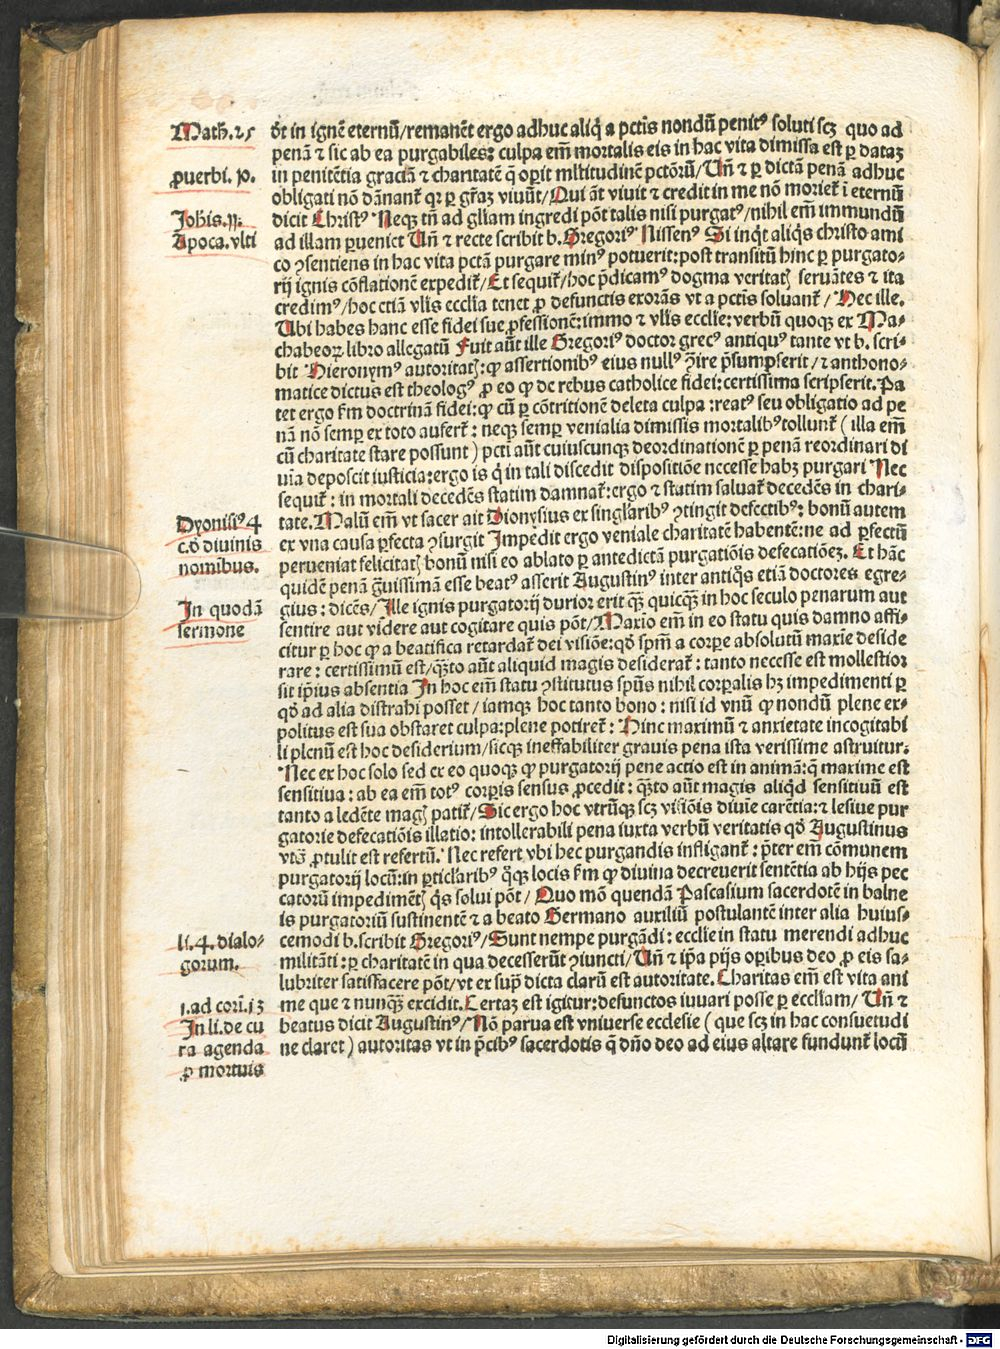 Math. 25
ōt in ignē eternū/remanēt ergo adhuc aliq̄ a pctīs nondū penitꝰ soluti scꝫ quo ad
penā ⁊ sic ab ea purgabiles: culpa em̄ mortalis eis in hac vita dimissa est ꝑ dataꝫ
ꝓuerbi. 10.
in penitētia graciā ⁊ charitatē q̄ oꝑit ml̄titudinē pctōrū/Un̄ ⁊ ꝑ dictā penā adhuc
obligati nō dānant᷑ qꝛ ꝑ gr̄aꝫ viuūt/Qui āt viuit ⁊ credit in me nō moriet᷑ ī eternū
Johīs. 11:
dicit Christꝰ Neqꝫ tn̄ ad gl̄iam ingredi pōt talis nisi purgatꝰ/nihil em̄ immundū
Apoca. vlti
ad illam ꝑuenict Un̄ ⁊ recte scribit b. Gregoriꝰ Nissenꝰ Si inqt̄ aliqs̄ christo ami
co ꝯsentiens in hac vita pctā purgare minꝰ potuerit: post transitū hinc ꝑ purgato-
rij ignis cōflationē expedit᷑/Et sequit᷑/hoc p̄dicamꝰ dogma veritatꝭ seruātes ⁊ ita
credimꝰ/hoc etiā vl̄is eccl̄ia tenet ꝓ defunctis exorās vt a pctīs soluant᷑/Hec ille.
Ubi habes hanc esse fidei sue ꝓfessionē: immo ⁊ vl̄is ecclie: verbū quoqꝫ ex Ma-
chabeoꝝ libro allegatū Fuit aūt ille Gregoriꝰ doctor grecꝰ antiquꝰ tante vt b. scri-
bit Hieronymꝰ autoritatꝭ: ꝙ assertionibꝰ eius nullꝰ ꝯ̄ire p̄sumpserit/⁊ anthono-
matice dictus est theologꝰ ꝓ eo ꝙ de rebus catholice fidei: certissima scripserit. Pa
tet ergo ẜm doctrinā fidei: ꝙ cū ꝑ cōtritionē deleta culpa: reatꝰ seu obligatio ad pe
nā nō semꝑ ex toto aufert᷑: neqꝫ semꝑ venialia dimissis mortalibꝰ tollunt᷑ (illa em̄
cū charitate stare possunt) pctī aūt cuiuscunqꝫ deordinationē ꝑ penā reordinari di
uīa deposcit iusticia: ergo is q̄ in tali discedit dispositiōe necesse habꝫ purgari Nec
sequit᷑: in mortali decedēs statim damnat᷑: ergo ⁊ statim saluat᷑ decedēs in chari-
Dyonisiꝰ 4
tate. Malū em̄ vt sacer ait Dionysius ex singl̄aribꝰ ꝯtingit defectibꝰ: bonū autem
c. d̄ diuinis
ex vna causa ꝑfecta ꝯsurgit Impēdit ergo veniale charitatē habentē: ne ad ꝑfectū
nomibus.
perueniat felicitatꝭ bonū nisi eo ablato ꝑ antedictā purgatiōis defecatiōeꝫ. Et hāc
quidē penā ḡuissimā esse beatꝰ asserit Augustinꝰ inter antiqs̄ etiā doctores egre-
In quodā
gius: dicēs/Ille ignis purgatorij durior erit q̄ꝫ quicq̄ꝫ in hoc seculo penarum aut
sermone
sentire aut videre aut cogitare quis pōt/Maxīo em̄ in eo statu quis damno affi-
citur ꝑ hoc ꝙ a beatifica retardat᷑ dei visiōe: qd̄ spm̄ a corꝑe absolutū maxīe deside
rare: certissimū est/q̄ꝫto aūt aliquid magis desiderat᷑: tanto necesse est mollestior
sit ip̄ius absentia In hoc em̄ statu ꝯstitutus spūs nihil corꝑalis hꝫ impedimenti ꝑ
qd̄ ad alia distrahi posset/iamqꝫ hoc tanto bono: nisi id vnū ꝙ nondū plene ex-
politus est sua obstaret culpa: plene potiret᷑: Hinc maximū ⁊ anxietate incogitabi
li plenū est hoc desiderium/sicqꝫ ineffabiliter grauis pena ista verissime astruitur:
Nec ex hoc solo sed ex eo quoqꝫ ꝙ purgatorij pene actio est in animā: q̄ maxime est
sensitiua: ab ea em̄ totꝰ corꝑis sensus ꝓcedit: q̄ꝫto aūt magis aliqd̄ sensitiuū est
tanto a ledēte magꝭ patit᷑/Sic ergo hoc vtrūqꝫ scꝫ visiōis diuīe carētia: ⁊ lesiue pur
gatorie defecatiōis illatio: intollerabili pena iuxta verbū veritatis qd̄ Augustinus
vtō ꝓtulit est refertū. Nec refert vbi hec purgandis infligant᷑: p̄ter em̄ cōmunem
purgatorij locū: in ꝑticl̄aribꝰ q̄qꝫ locis ẜm ꝙ diuina decreuerit sentētia ab hijs pec
catorū impedimētꝭ qs̄ solui pōt/Quo mō quendā Pascasium sacerdotē in balne
is purgatoriū sustinentē ⁊ a beato Germano auxiliū postulantē inter alia huius-
li. 4. dialo-
cemodi b. scribit Gregoriꝰ/Sunt nempe purgādi: ecclie in statu merendi adhuc
gorum.
militāti: ꝑ charitatē in qua decesserūt ꝯiuncti/Un̄ ⁊ ip̄a pijs oꝑibus deo ꝓ eis sa-
lubriter satissfacere pōt/vt ex sup̄ dicta clarū est autoritate. Charitas em̄ est vita ani
1. ad corī. 13
me que ⁊ nunq̄ꝫ excidit. Certaꝫ est igitur: defunctos iuuari posse ꝑ eccl̄iam/Un̄ ⁊
In li. de cu
beatus dicit Augustinꝰ/Nō parua est vniuerse ecclesie (que scꝫ in hac consuetudi
ra agenda
ne claret) autoritas vt in p̄cibꝰ sacerdotis q̄ dn̄o deo ad eius altare fundunt᷑ locū
ꝓ mortuis
Digitalisierung gefördert durch die Deutsche Forschungsgemeinschaft - DFG